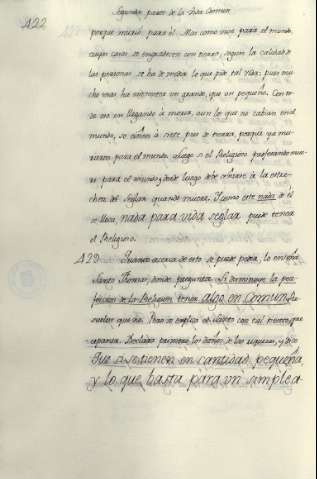 122
Segunda parte de la Vida Comun
porque murió para él. Mas como vive para el mundo,
cuyas casas se engrandecen con tierras, segun la calidad de
las personas se ha de medir lo que pide tal vida: pues mu-
cho mas ha menester un grande, que un pequeño. Con to-
do eso en llegando à morir, aun lo que no cabian en el
mundo, se ciñen à siete pies de tierra, porque ya mu-
rieron para el mundo. Luego si el Religioso profesando mue-
re para el mundo, desde luego debe ceñirse à la estre-
chez del seglar quando muere. Y como este nada de èl
se lleva, nada para vida seglar puede tener
el Religioso.
129 Quanto acerca de esto se puede pedir, lo enseña
Santo Thomas, donde pregunta: Si disminuye la per-
feccion de la Religion tener algo en comun.
suelve que no. Pero se explica el Santo con tal
Declara primero los daños de las riquezas, y dice
Que si se tienen en cantidad pequeña,
y lo que basta para un simple a